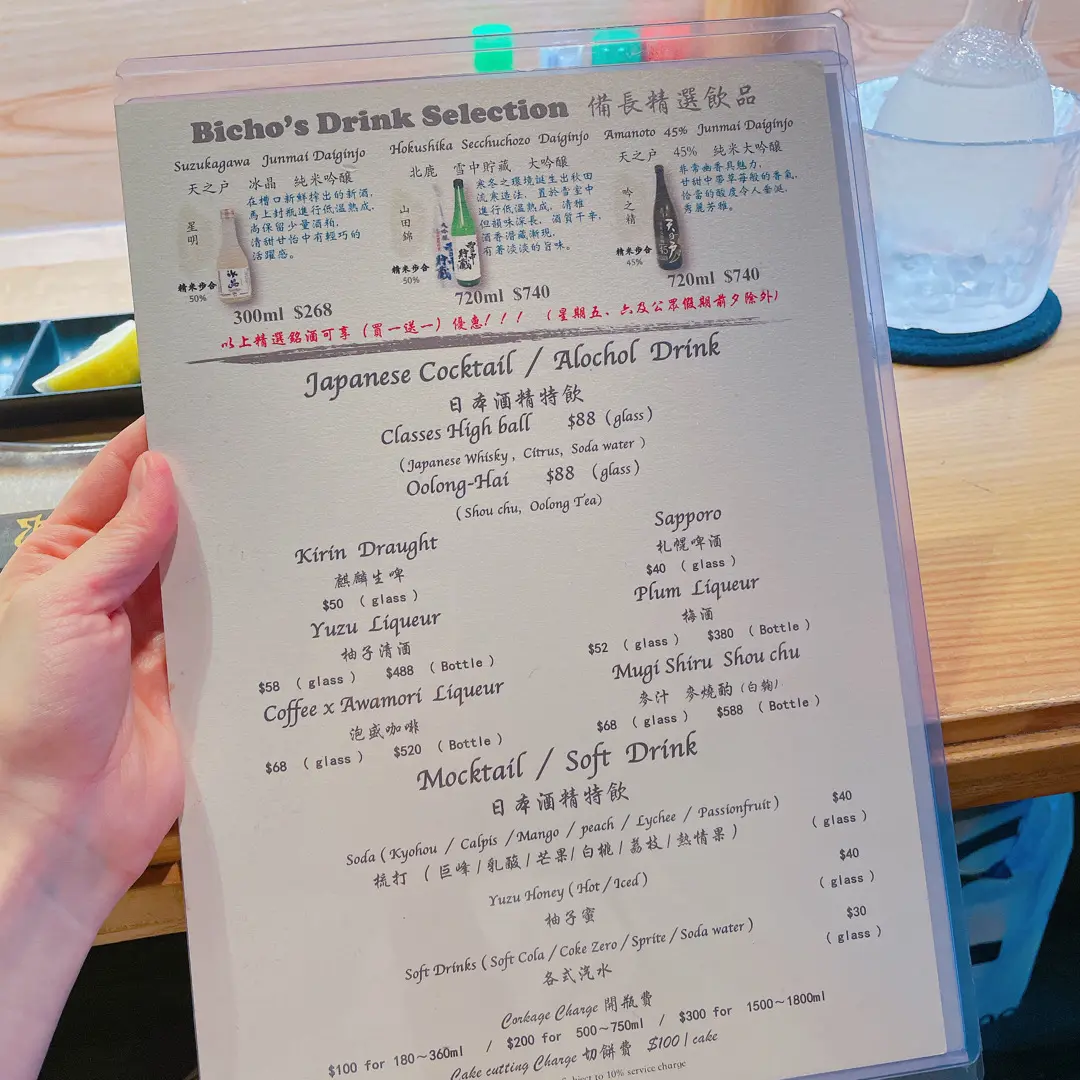 Bicho's Drink Selection 備長精選飲品
Suzukagawa Junmai Daiginjo
天之戶 冰晶 純米吟釀
在槽口新鮮榨出的新酒,
馬上封瓶進行低溫熟成,
尚保留少量酒粕,
清甜甘怡中有輕巧的
活躍感。
星明
精米步合
50%
300ml $268
Hokushika Secchuchozo Daiginjo
北鹿 雪中貯藏 大吟釀
寒冬之環境誕生出秋田
流寒造法, 置於雪室中
進行低溫熟成, 清雅
但韻味深長, 酒質干辛,
酒香潛藏漸現,
有著淡淡的旨味。
山田錦
精米步合
50%
720ml $740
Amanoto 45% Junmai Daiginjo
天之戶 45% 純米大吟釀
非常幽香具魅力,
甘甜中帶草莓般的香氣,
恰當的酸度令人垂涎,
秀麗芳雅。
吟之精
精米步合
45%
720ml $740
以上精選銘酒可享 (買一送一) 優惠! ! ! (星期五、六及公眾假期前夕除外)
Japanese Cocktail / Alochol Drink
日本酒精特飲
Classes High ball $88 (glass)
(Japanese Whisky , Citrus, Soda water )
Oolong-Hai $88 (glass)
( Shou chu, Oolong Tea)
Kirin Draught
麒麟生啤
$50 ( glass )
Sapporo
札幌啤酒
$40 ( glass )
Yuzu Liqueur
柚子清酒
$58 ( glass ) $488 ( Bottle )
Plum Liqueur
梅酒
$52 ( glass ) $380 ( Bottle )
Coffee x Awamori Liqueur
泡盛咖啡
$68 ( glass ) $520 ( Bottle )
Mugi Shiru Shou chu
麥汁 麥燒酌 (白麴)
$68 ( glass ) $588 ( Bottle )
Mocktail / Soft Drink
日本酒精特飲
Soda ( Kyohou / Calpis / Mango / peach / Lychee / Passionfruit ) $40
梳打 ( 巨峰 / 乳酸 / 芒果 / 白桃 / 荔枝 / 熱情果 ) ( glass )
Yuzu Honey ( Hot / Iced ) $40
柚子蜜 ( glass )
Soft Drinks ( Soft Cola / Coke Zero / Sprite / Soda water ) $30
各式汽水 ( glass )
Corkage Charge 開瓶費
$100 for 180~360ml / $200 for 500~750ml / $300 for 1500~1800ml
Cake cutting Charge 切餅費 $100 | cake
to 10% service charge